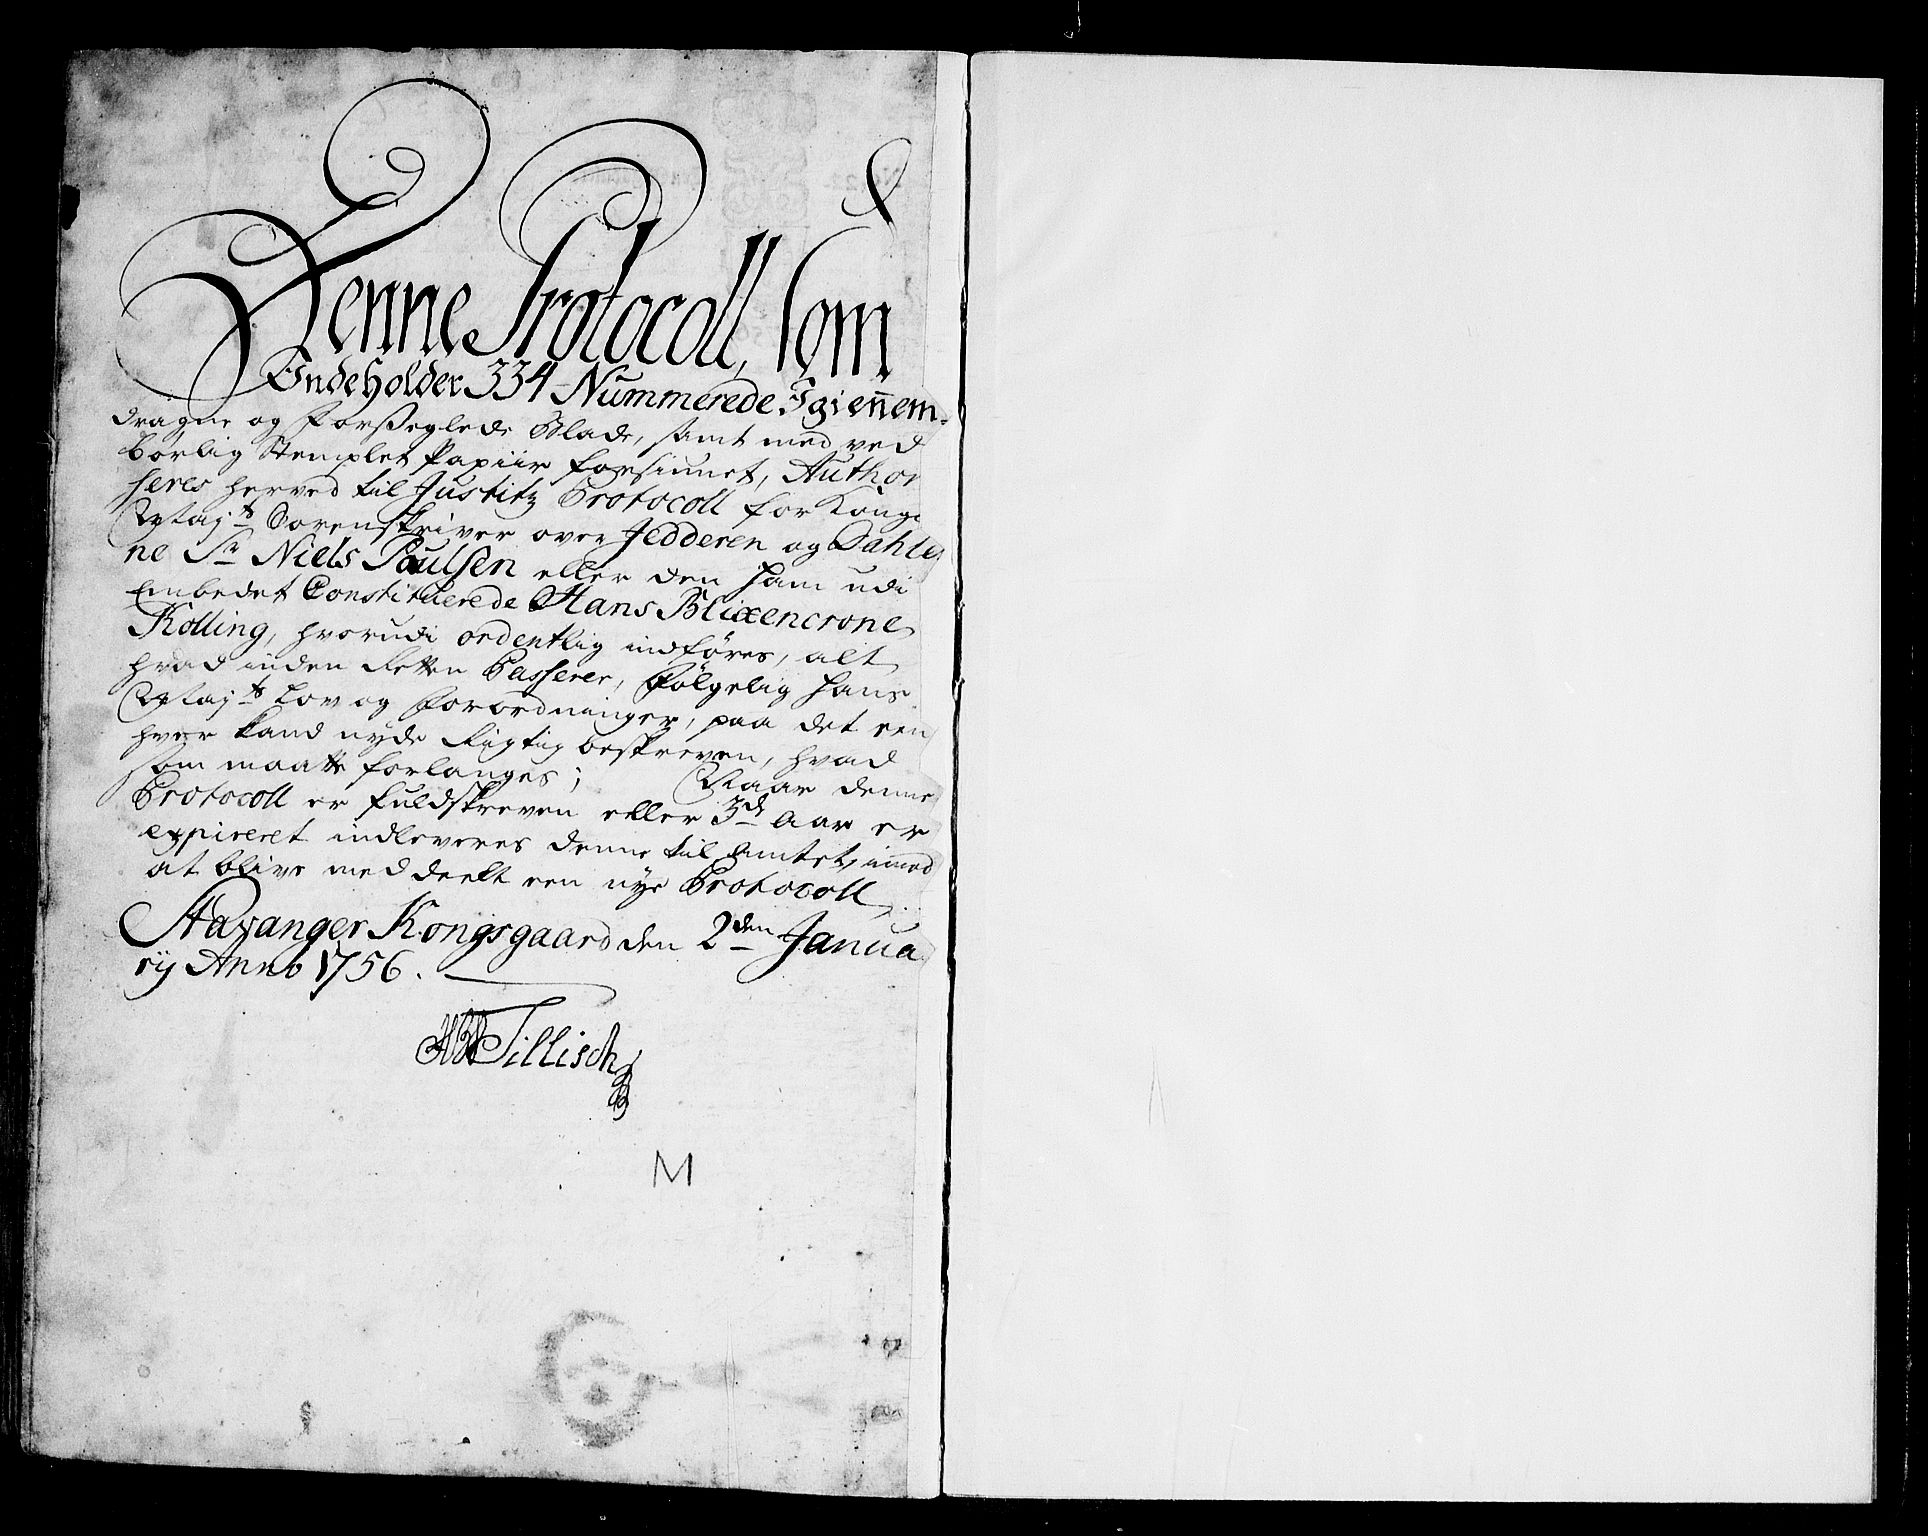 Denne Protocoll, som
Indeholder 334 Nummerede Igiennem-
dragne og forseglede Blade, samt med ved
børlig Stemplet Papiir forsiunet, Author
seres herved til Justitz Protocoll for Konge
May:ts Sorenskriver over Jedderen og Dahle
ne Sr Niels Paulsen eller den ham udi
Embedet Constituerede Hans Blixencrone
Kölling, hvorudi ordentlig indføres, alt
hvad inden Retten Passerer, Følgelig hans
May:ts Lov og Forordninger, paa det een
hver kand nyde Rigtig beskreven, hvad
som maatte forlanges; Naar denne
Protocoll er fuldskreven eller 3de Aar er
expireret indleveres denne til Amtet, imod
at blive meddeelt een nye Protocoll
Stavanger Kongsgaard den 2den Janua
rij Anno 1756.
Tillisch
M